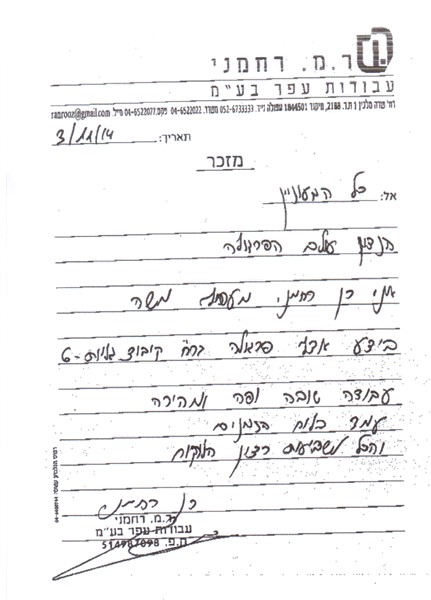 ר.מ. רחמני
עבודות עפר בע"מ
רח' שדה מלכין 1 ת.ד. 2188, מיקוד 1844501 עפולה נייד. 052-6733333 משרד. 04-6522022 פקס. 04-6522077 מייל ranrooz@gmail.com
תאריך: 3/11/14
מזכר
אל: כל המעוניין
הנדון עולם הפרגולה
אני רן רחמני משה
ביצע אצלי פרגולה ברח קיבוץ גלויות 6
עבודה טובה ופה ומהירה
עמד בלוח הזמנים
והכל לשביעות רצון הלקוח
רן רחמני
ר.מ. רחמני
עבודות עפר בע"מ
ח.פ. 514987098